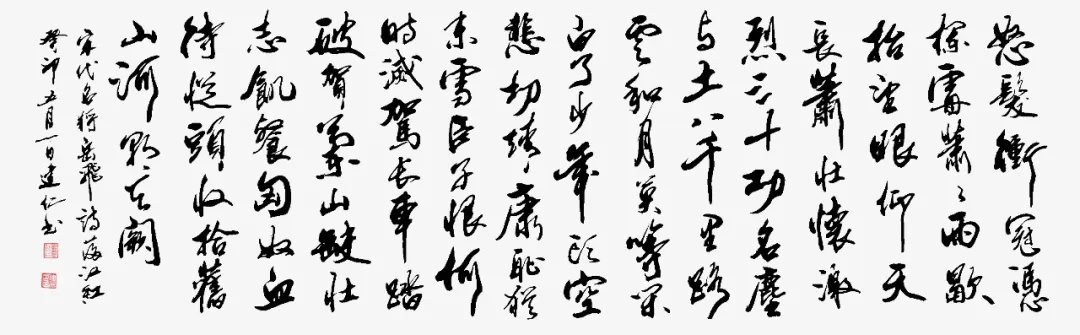 怒髮衝冠憑
欄處蕭〻雨歇
抬望眼仰天
長蕭壯懷激
烈三十功名塵
与土八千里路
雲和月莫等闲
白了少年头空
悲切靖康耻猶
未雪臣子恨何
時滅駕長車踏
破賀蘭山缺壯
志飢餐匈奴血
待從頭收拾舊
山河朝天闕
宋代名将岳飛詩满江紅
癸卯五月一日建仁书